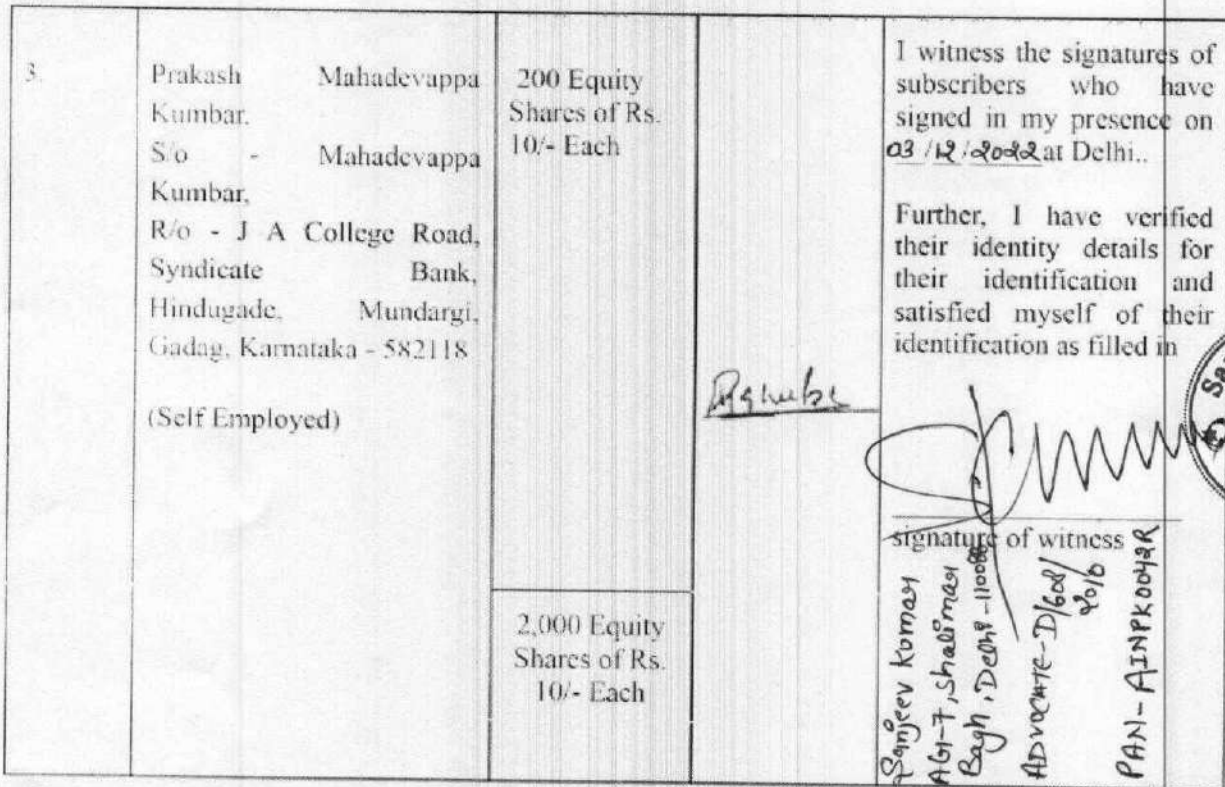 3.
Prakash Mahadevappa
Kumbar.
S/o - Mahadevappa
Kumbar,
R/o - J A College Road,
Syndicate Bank,
Hindugade, Mundargi,
Gadag, Karnataka - 582118
(Self Employed)
200 Equity
Shares of Rs.
10/- Each
2,000 Equity
Shares of Rs.
10/- Each
I witness the signatures of
subscribers who have
signed in my presence on
03/12/2022 at Delhi..
Further, I have verified
their identity details for
their identification and
satisfied myself of their
identification as filled in
signature of witness
Sanjeev Kumar
AG1-7, Shalimar
Bagh, Delhi-110088
ADVOCATE-D/608/
2010
PAN-AINPK0042R